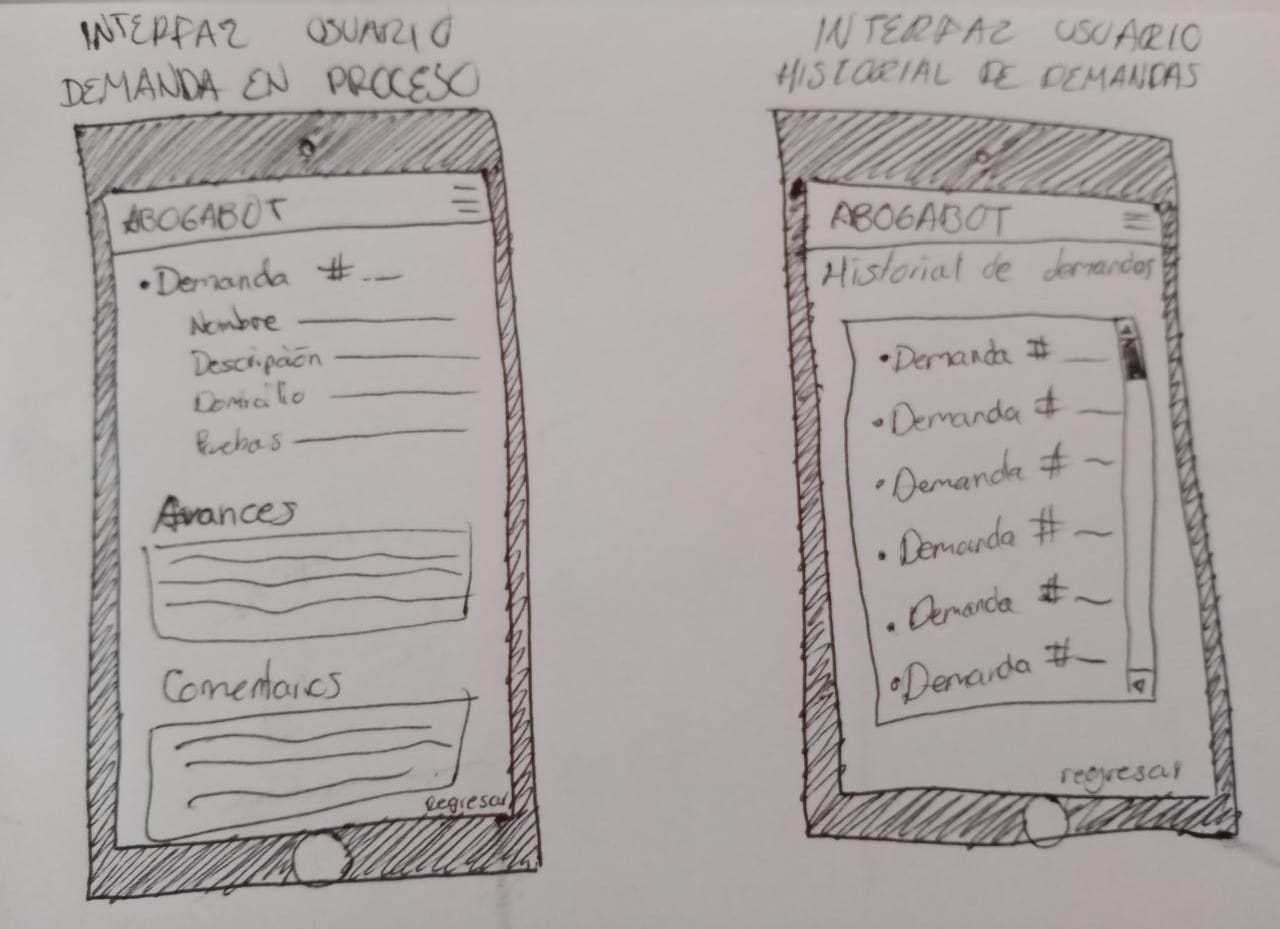 INTERFAZ USUARIO
DEMANDA EN PROCESO
ABOGABOT
• Demanda # __
Nombre
Descripción
Domicilio
Pruebas
Avances
Comentarios
regresar
INTERFAZ USUARIO
HISTORIAL DE DEMANDAS
ABOGABOT
Historial de demandas
• Demanda # __
• Demanda # __
• Demanda # __
• Demanda # __
• Demanda # __
• Demanda # __
regresar